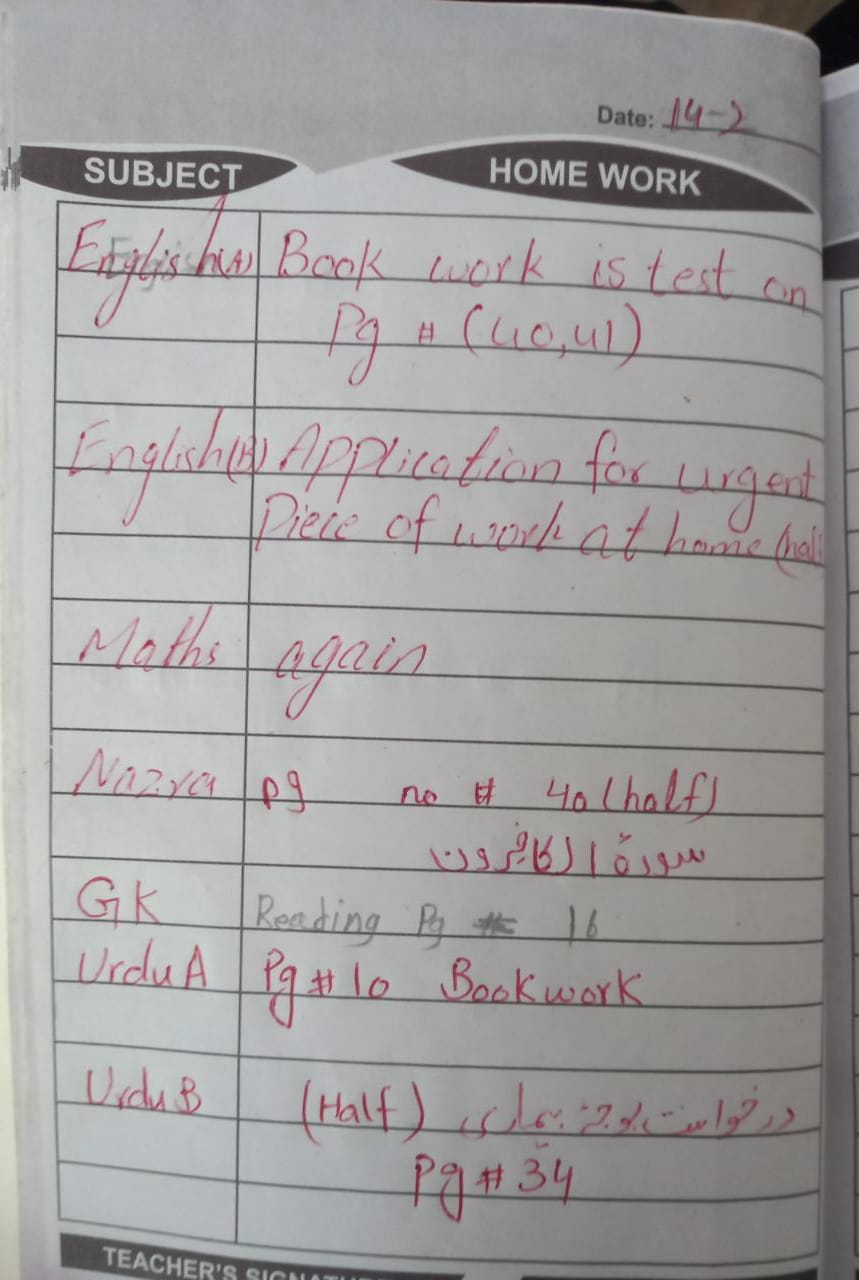 Date: 14-2
SUBJECT HOME WORK
English(A) Book work is test on
Pg # (40,41)
English(B) Application for urgent
Piece of work at home (half
Maths again
Nazra pg no # 40 (half)
سورۃ الکافرون
GK Reading Pg # 16
Urdu A Pg # 10 Book work
Urdu B (Half) درخواست بوجہ بیماری
Pg # 34
TEACHER'S